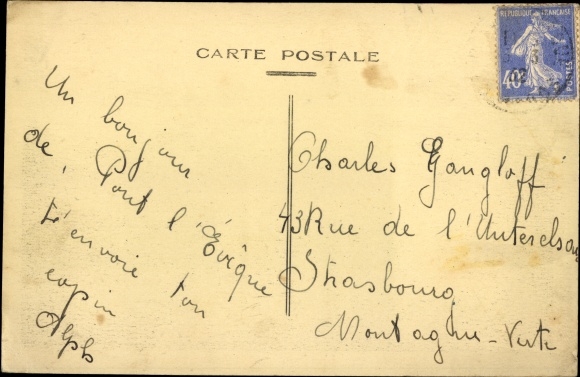 CARTE POSTALE
REPUBLIQUE FRANÇAISE
40
POSTES
Un bonjour
de, Pont l'Évêque
t'envoie ton
copin
Alph
Charles Gangloff
43 Rue de l'Unterelsau
Strasbourg
Montagne-Verte